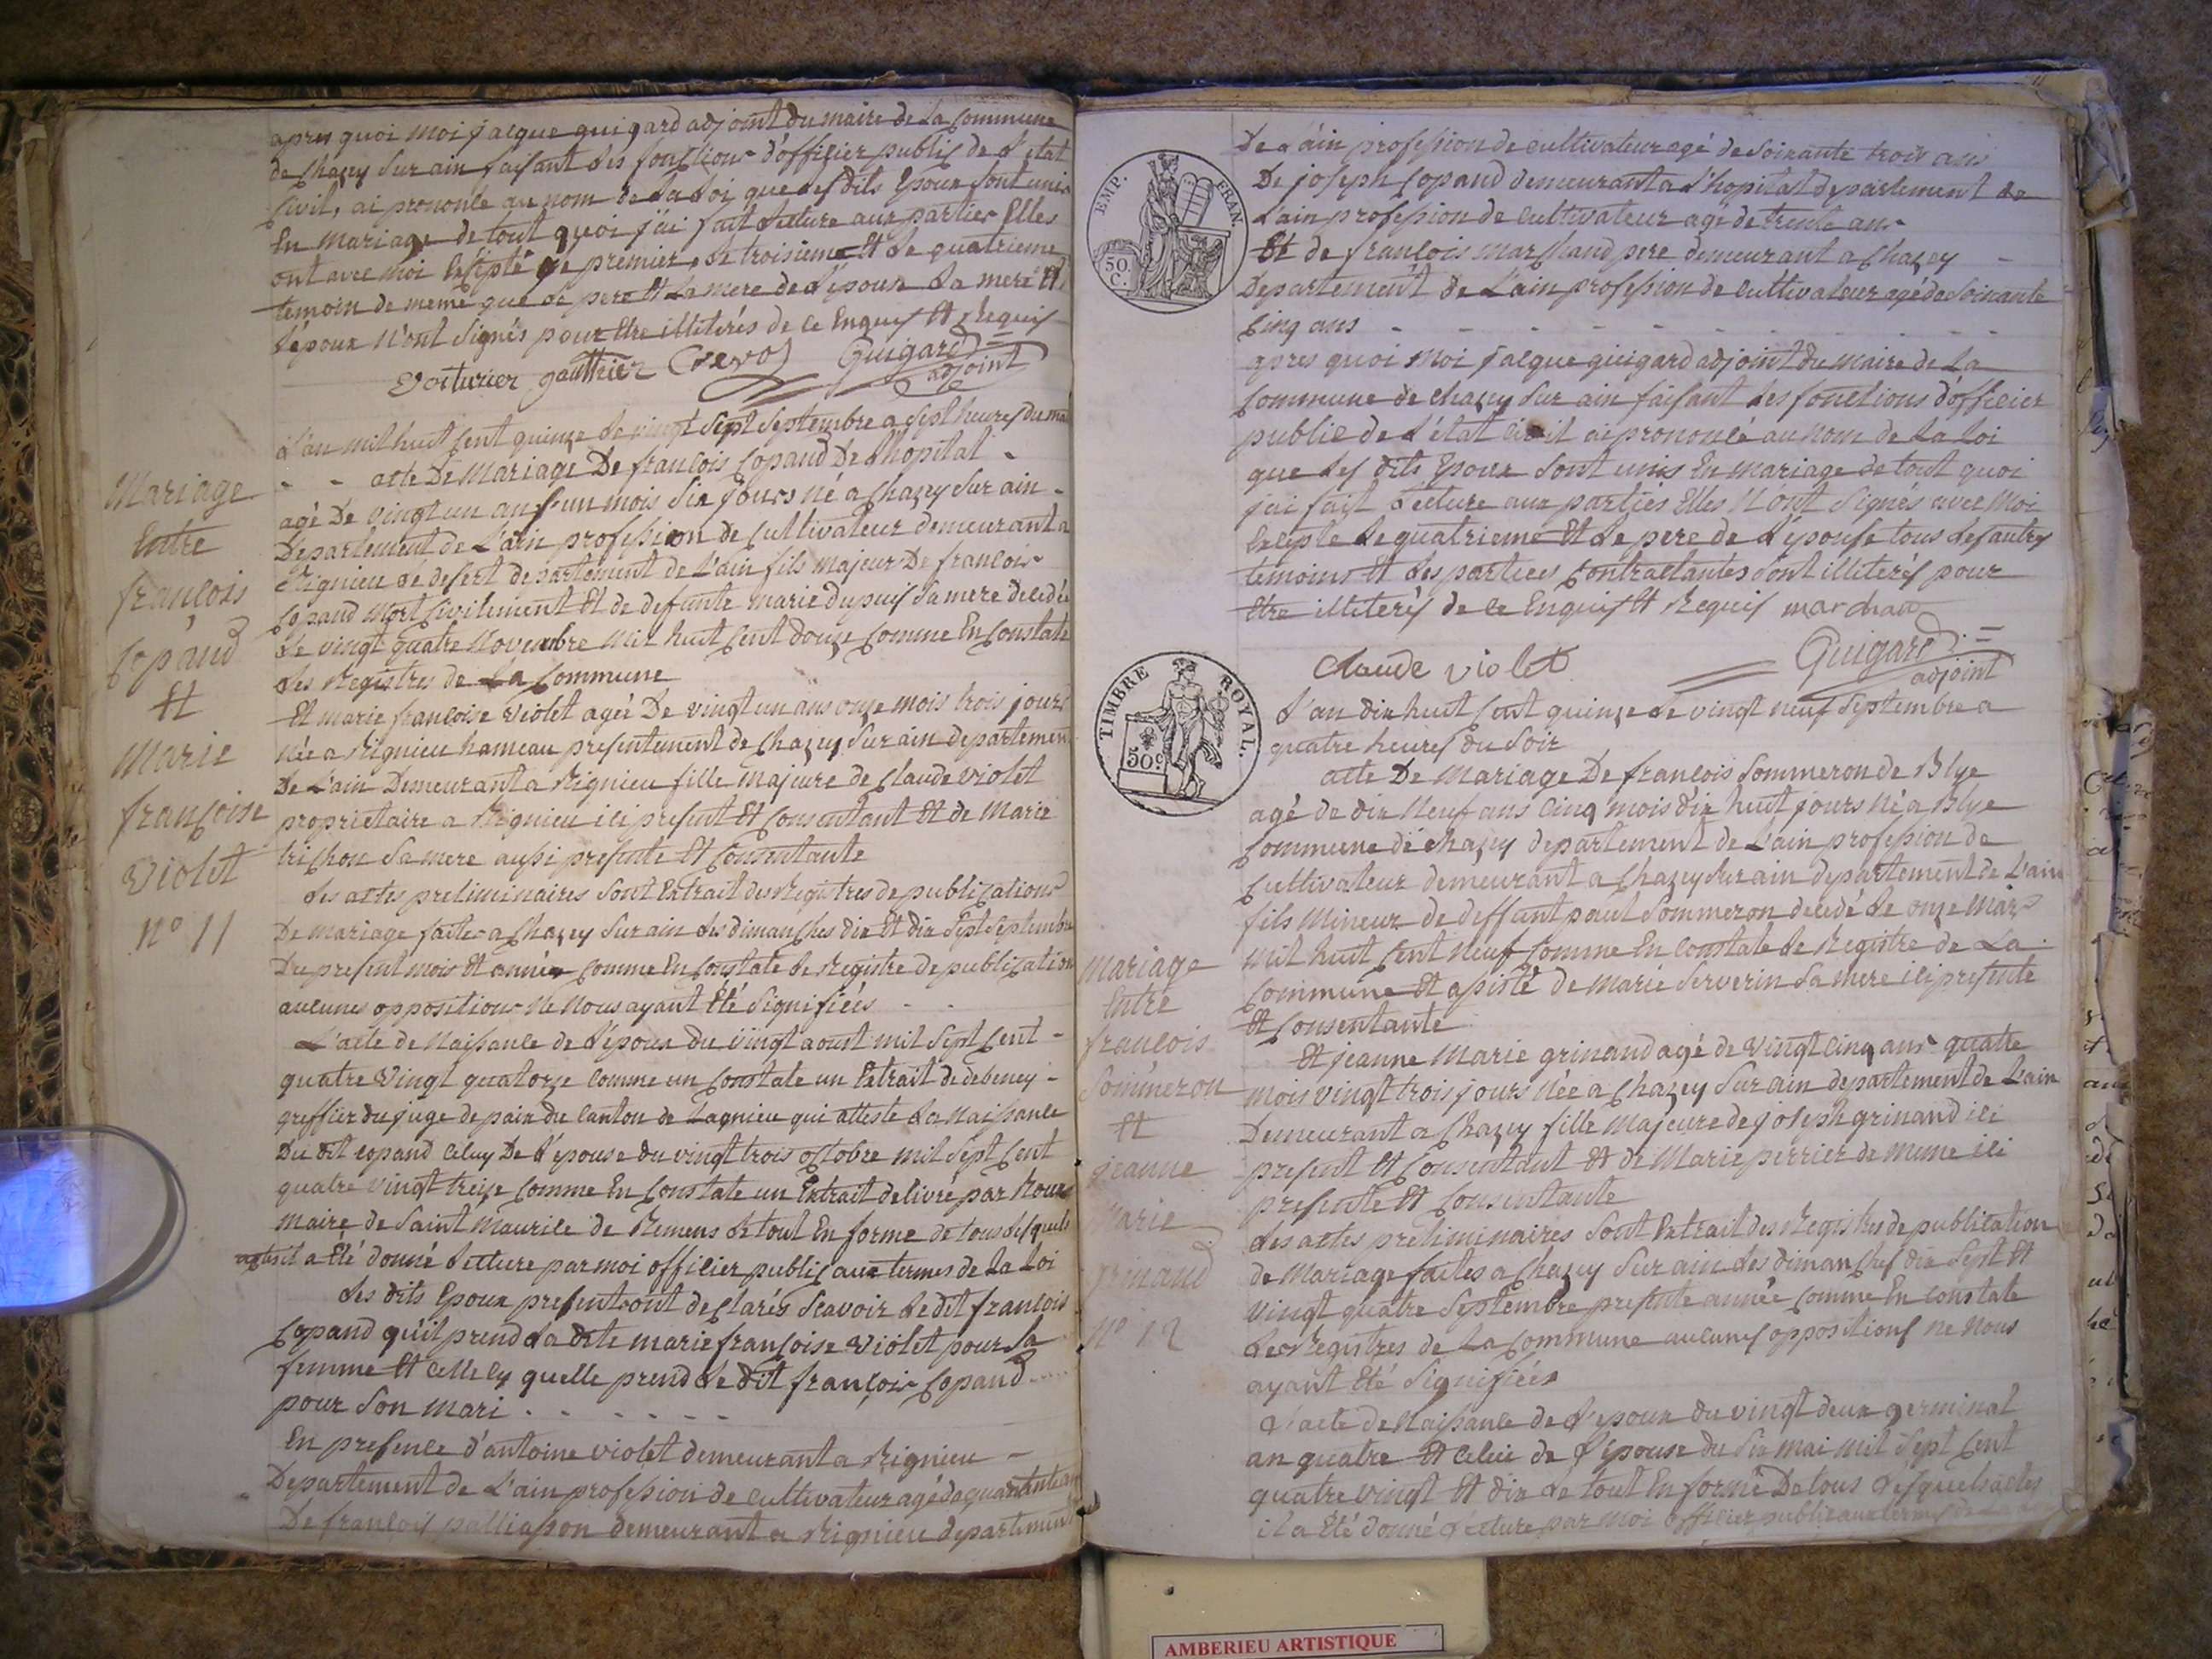 apres quoi moi jacque guigard adjoint du maire de La Commune
de chazey Sur ain faisant les fonctions d'officier public de L'etat
Civil, ai prononcé au nom de La Loi que les dits Epoux Sont unis
En mariage de tout quoi j'ai fait Lecture aux parties Elles
ont avec moi Excepté Le premier, Le troisieme Et Le quatrieme
temoin de meme que Le pere Et La mere de L'époux La mere Et
L'époux N'ont Signés pour Etre illiterés de ce Enquis Et Requis
Voiturier gauthier Crevos Guigard
adjoint
Mariage
Entre
françois
Copand
Et
Marie
françoise
Violet
N° 11
L'an mil huit Cent quinze Le vingt Sept Septembre a Sept heures du mat
- - acte De Mariage De francois Copand De Lhopital -
agé De vingt un ans un mois Six jours Né a Chazey Sur ain -
Departement de L'ain profession de Cultivateur demeurant a
Rignieu Le desert departement de L'ain fils majeur De francois
Copand Mort Civilement Et de defunte marie dupuis Sa mere decedée
Le vingt quatre Novembre mil huit Cent douze Comme En Constate
Les Registres de La Commune
Et marie francoise Violet agée De vingt un ans onze mois trois jours
Née a Rignieu hameau presentement de Chazey Sur ain departement
De L'ain Demeurant a Rignieu fille majeure de Claude Violet
propriétaire a Rignieu ici present Et Consentant Et de Marie
trichon Sa mere aussi presente Et Consentante
Les actes preliminaires Sont Extrait des Registres de publications
De mariage faites a Chazey Sur ain Les dimanches dix Et dix Sept Septembre
Du present mois Et année Comme En Constate Le Registre de publication
aucunes oppositions Ne Nous ayant Eté Signifiées - -
L'acte de Naissance de L'époux du vingt aoust mil Sept Cent -
quatre Vingt quatorze Comme un Constate un Extrait de debeney -
greffier du juge de paix du Canton de Lagnieu qui atteste La Naissance
Du dit Copand Celuy De L'épouse du vingt trois octobre mil Sept Cent
quatre vingt treize Comme En Constate un Extrait delivré par Nous
Maire de Saint Maurice de Remens Le tout En forme de tous Lesquels
actes il a Eté donné Lecture par moi officier public aux termes de La Loi
Les dits Epoux present ont declarés Scavoir Le dit francois
Copand qu'il prend La dite marie françoise Violet pour Sa
femme Et Celle Cy quelle prend Le dit françois Copand
pour Son Mari - - - - - -
En presence d'antoine violet demeurant a Rignieu -
Departement de L'ain profession de Cultivateur agé de quarante ans
De francois palliasson demeurant a Rignieu departement
EMP. FRAN.
50.
C.
De L'ain profession de Cultivateur agé de Soixante trois ans
De joseph Copand demeurant a L'hopital Departement de
L'ain profession de Cultivateur agé de trente ans
Et de francois marchand pere demeurant a Chazey -
Departement de L'ain profession de Cultivateur agé de Soixante
Cinq ans - - - - - - - -
apres quoi moi jacque guigard adjoint du maire de La
Commune de chazey Sur ain faisant Les fonctions d'officier
public de L'état Civil ai prononcé au nom de La Loi
que Les dits Epoux Sont unis En mariage de tout quoi
j'ai fait Lecture aux parties Elles N ont Signés avec Moi
Excepte Le quatrieme Et Le pere de L'épouse tous Les autres
temoins Et Les parties Contractantes Sont illiterés pour
Etre illiterés de ce Enquis Et Requis marchan
Guigard
Claude violet adjoint
TIMBRE ROYAL.
50c
L'an dix huit Cent quinze Le vingt neuf Septembre a
quatre heures du Soir
Mariage
Entre
francois
Sommeron
Et
jeanne
Marie
grinand
N° 12
acte De Mariage De francois Sommeron de Blye
agé de dix Neuf ans Cinq mois dix huit jours Né a Blye
Commune de Chazey departement de L'ain profession de
Cultivateur demeurant a Chazey Sur ain departement de L'ain
fils Mineur de deffunt paul Sommeron decedé Le onze Mars
mil huit Cent Neuf Comme En Constate Le Registre de La
Commune Et assisté de Marie Serverin Sa mere ici presente
Et Consentante
Et jeanne Marie grinand agé de Vingt Cinq ans quatre
mois vingt trois jours Née a Chazey Sur ain departement de L'ain
Demeurant a Chazey fille Majeure de joseph grinand ici
present Et Consentant Et de Marie perrier de Meme ici
presente Et Consentante
Les actes preliminaires Sont Extrait des Registres de publication
de Mariage faites a Chazey Sur ain Les dimanches dix Sept Et
Vingt quatre Septembre presente année Comme En Constate
Les Registres de La Commune aucunes oppositions ne Nous
ayant Eté Signifiées
L'acte de Naissance de L'epoux du vingt deux germinal
an quatre Et Celui de L'épouse du Six mai mil Sept Cent
quatre vingt Et dix Le tout En forme De tous Lesquels actes
il a Eté donné Lecture par moi officier public aux termes de La
AMBERIEU ARTISTIQUE